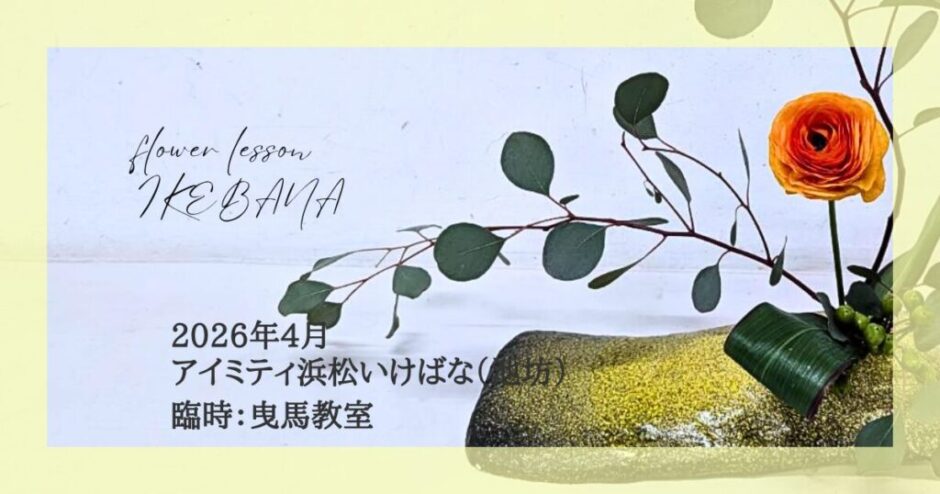 flower lesson
IKEBANA
2026年4月
アイミティ浜松いけばな(池坊)
臨時:曳馬教室